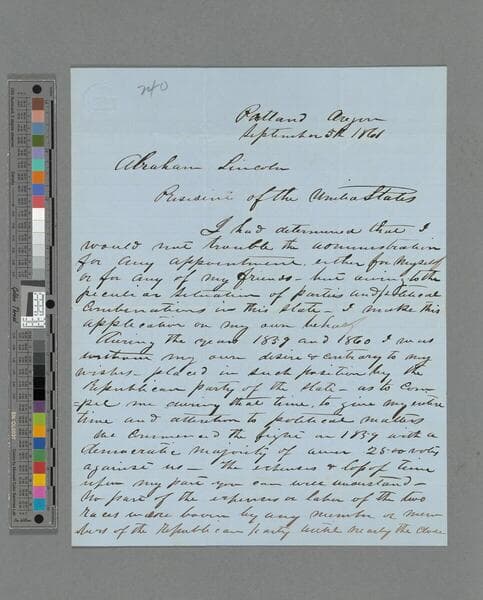 240
Portland Oregon
September 5th 1861
Abraham Lincoln
President of the United States
I had determined that I
would not trouble the administration
for any appointment either for myself
or for any of my friends - but owing to the
peculiar situation of parties and political
Combinations in this State - I make this
application on my own behalf
During the years 1859 and 1860 I was
without my own desire & contrary to my
wishes placed in such position by the
Republican party of the State - as to com
=pel me during that time, to give my entire
time and attention to political matters
We commenced the fight in 1859 with a
democratic majority of over 2500 votes
against us - The expenses & loss of time
upon my part you can well understand -
No part of the expenses or labor of the two
races were borne by any member or mem
bers of the Republican party until nearly the close